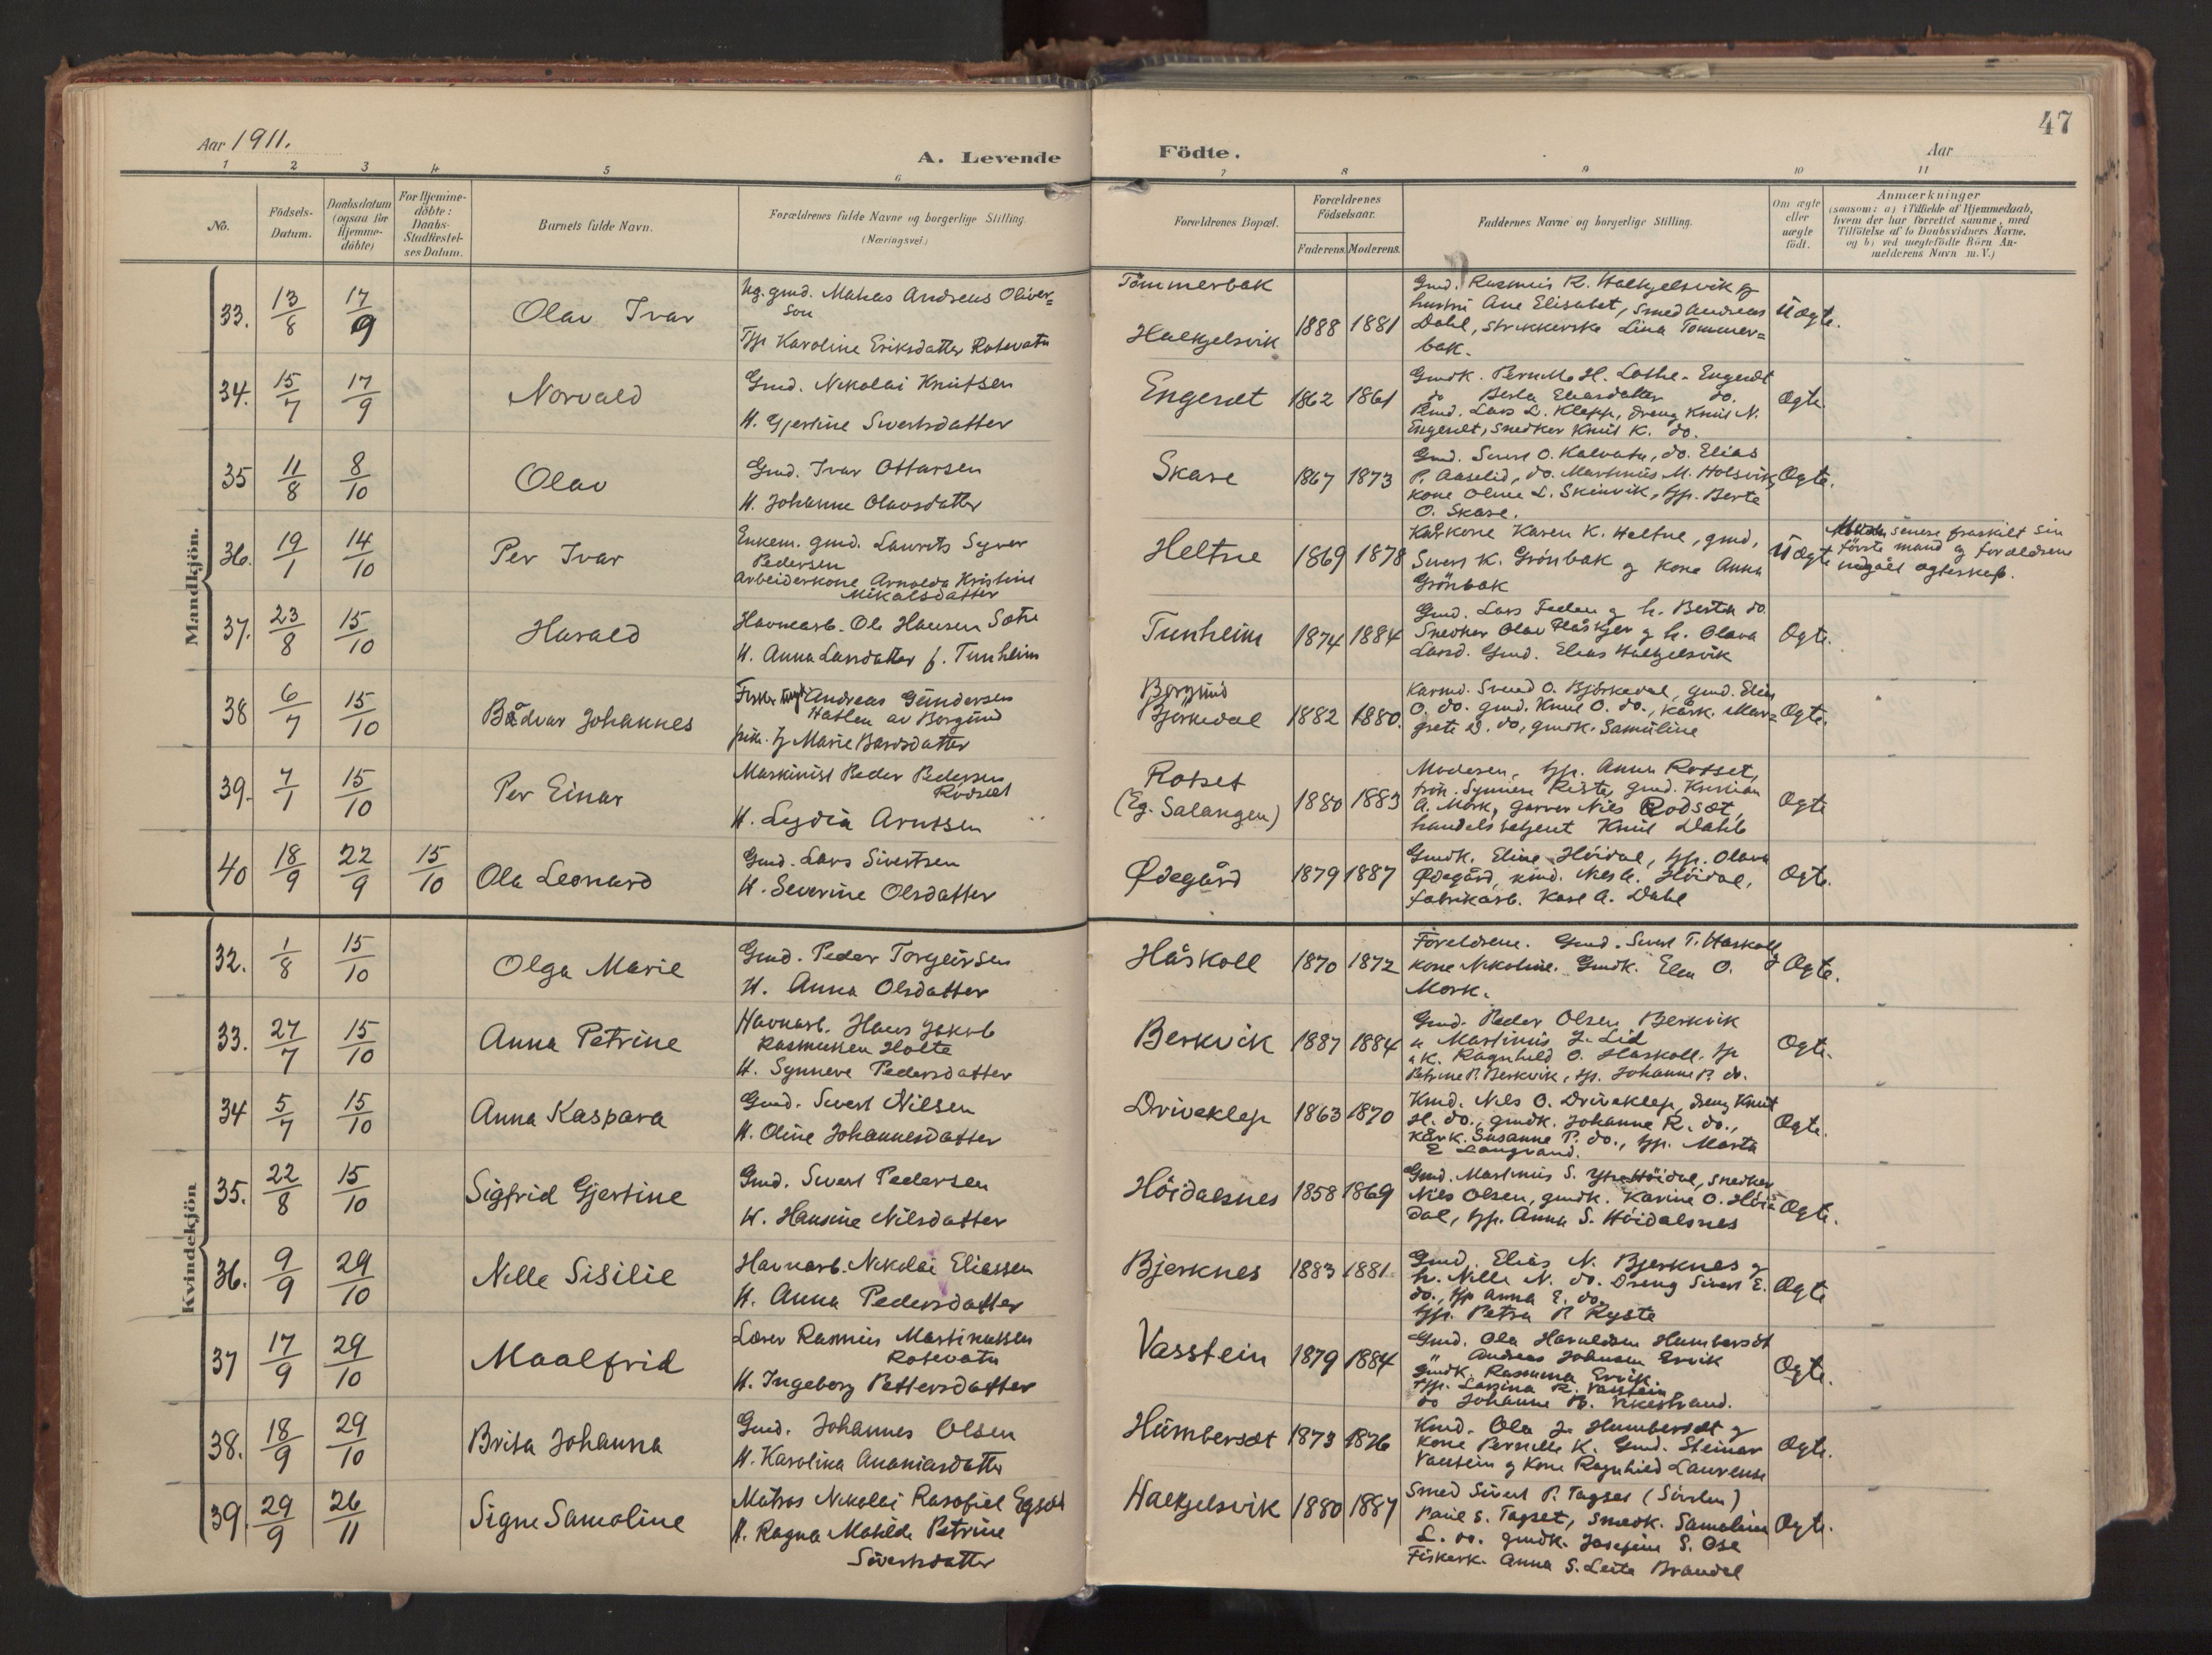 47
Aar 1911.
A. Levende Födte.
Aar
1 2 3 4 5 6 7 8 9 10 11
No.
Födsels-Datum.
Daabsdatum (ogsaa for Hjemmedöbte)
For Hjemmedöbte: Daabs-Stadfæstelses Datum.
Barnets fulde Navn.
Forældrenes fulde Navne og borgerlige Stilling.
(Næringsvei.)
Forældrenes Bopæl.
Forældrenes Födselsaar.
Faderens. Moderens.
Faddernes Navne og borgerlige Stilling.
Om ægte eller uægte födt.
Anmærkninger
(saasom: a) i Tilfælde af Hjemmedaab,
hvem der har forrettet samme, med
Tilföielse af to Daabsvidners Navne.
og b) ved uægtefödte Börn Anmelderens Navn m. V.)
Mandkjön.
33. 13/8 17/9 Olav Ivar
Ug. gmd. Makas Andreas Oliver=
son
Tjp. Karoline Eriksdatter Rotevatn
Tömmerbak
Halkjelsvik 1888 1881
Gmd. Rasmus R. Halkjelsvik og
hustru Ane Elisabet, smed Andreas
Dahl, strikkerske Lina Tommer=
bak.
Uægte.
34. 15/7 17/9 Norvald
Gmd. Nikolai Knutsen
H. Gjertine Sivertsdatter
Engeset 1862 1861
Gmdk. Pernille H. Lothe-Engeset
do Berta Eliasdatter do.
Kmd. Lars L. Klepp, dreng Knut N.
Engeset, snedker Knut K. do.
Ægte.
35 11/8 8/10 Olav
Gmd. Ivar Ottarsen
H. Johanne Olavsdatter
Skare 1867 1873
Gmd. Sivert O. Kalvatn, do. Elias
P. Aaselid, do. Martinus M. Holsvik,
kone Oline L. Skinvik, tjp. Berte
O. Skare.
Ægte.
36. 19/1 14/10 Per Ivar
Enkem. gmd. Laurits Syver
Pedersen
Arbeiderkone Arnolda Kristine
Mikalsdatter
Heltne 1869 1878
Kårkone Karen K. Heltne, gmd.
Sivert K. Grönbak og kone Anna
Grönbak
Uægte
senere fraskilt sin
förste mand og forældrene
indgået ægteskap.
37. 23/8 15/10 Harald
Havnearb. Ole Hansen Sætre
H. Anna Larsdatter f. Tunheim
Tunheim 1874 1884
Gmd. Lars Feden og h. Berta do.
Snedker Olav Flåskjer og h. Olava
Larsd. Gmd. Elias Halkjelsvik
Ægte.
38 6/7 15/10 Bådvar Johannes
Andreas Gundersen
Hatlen av Borgund
Marie Bardsdatter
Borgund
Bjørkedal 1882 1880.
Kaarmd. Svend O. Bjørkedal, gmd. Elias
O. do. gmd. Knut O. do., kårk. Mar=
grete D. do, gmdk. Samuline
Ægte.
39. 7/1 15/10 Per Einar
Maskinist Peder Pedersen
Rødset
H. Lydia Arntsen
Rotset
(Eg. Salangen) 1880 1883
Moderen, tjp. Anna Rotset,
frk. Synnøve Riste, gmd. Kristian
A. Mork, garver Nils Rodsæt,
handelsbetjent Knut Dahle
Ægte
40 18/9 22/9 15/10 Ola Leonard
Gmd. Lars Sivertsen
H. Severine Olsdatter
Ødegård 1879 1887
Gmdk. Eline Höidal, tjp. Olava
Ødegård, kmd. Nils A. Höidal,
fabrikarb. Karl A. Dahl
Ægte.
Kvindekjön
32. 1/8 15/10 Olga Marie
Gmd. Peder Torgeirsen
H. Anna Olsdatter
Håskoll 1870 1872
Foreldrene. Gmd. Sivert T. Haskoll og
kone Nikoline. Gmdk. Elen O.
Mork.
Ægte.
33. 27/7 15/10 Anna Petrine
Havnarb. Hans Jakob
Rasmussen Holte
H. Synneve Pedersdatter
Berkvik 1887 1884
Gmd. Peder Olsen Berkvik
" Martinus J. Lid
" K. Ragnhild O. Haskoll. tjp
Petrine P. Berkvik, tjp. Johanne P. do.
Ægte.
34 5/7 15/10 Anna Kaspara
Gmd. Sivert Nilsen
H. Oline Johannesdatter
Driveklep 1863 1870
Kmd. Nils O. Driveklep, dreng Knut
H. do., gmdk. Johanne R. do.,
kårk. Susanne P. do., tjp. Marta
E Langvand.
Ægte.
35. 22/8 15/10 Sigfrid Gjertine
Gmd. Sivert Pedersen
H. Hansine Nilsdatter
Höidalsnes 1858 1869
Gmd. Martinus S. Ytre Höidal, snedker
Nils Olsen, gmdk. Karine O. Höi=
dal, tjp. Anna S. Höidalsnes
Ægte.
36. 9/9 29/10 Nille Sisilie
Havnarb. Nikolai Eliassen
H. Anna Pedersdatter
Bjerknes 1883 1881
Gmd. Elias N. Bjerknes og
h. Nille N. do. Dreng Sivert E.
do., tjp Anna E. do.
tjp. Petra P. Ryste
Ægte
37 17/9 29/10 Maalfrid
Lærer Rasmus Martinussen
Rotevatn
H. Ingeborg Pettersdatter
Vasstein 1879 1884
Gmd. Ola Haraldsen Humberset
" Andreas Johansen Ervik
Gmdk. Rasmina Ervik
Tjp. Lassina R. Vasstein
do Johanne B. Vikestrand.
Ægte.
38. 18/9 29/10 Brita Johanna
Gmd. Johannes Olsen
H. Karolina Ananiasdatter
Humberset 1873 1876
Kmd. Ola J. Humberset og
kone Pernille K. Gmd. Steinar
Vasstein og kone Ragnhild Laurense
Ægte.
39. 29/9 26/11 Signe Samoline
Matros Nikolai Rasofiel Egset
H. Ragna Matilde Petrine
Sivertsdatter
Halkjelsvik 1880 1887
Smed Sivert P. Tagset (Sivslen)
Paul S. Tagset, smedk. Samoline
L. do. gmdk. Josefine S. Ose
Fiskerk. Anna S. Leite Brandal
Ægte.